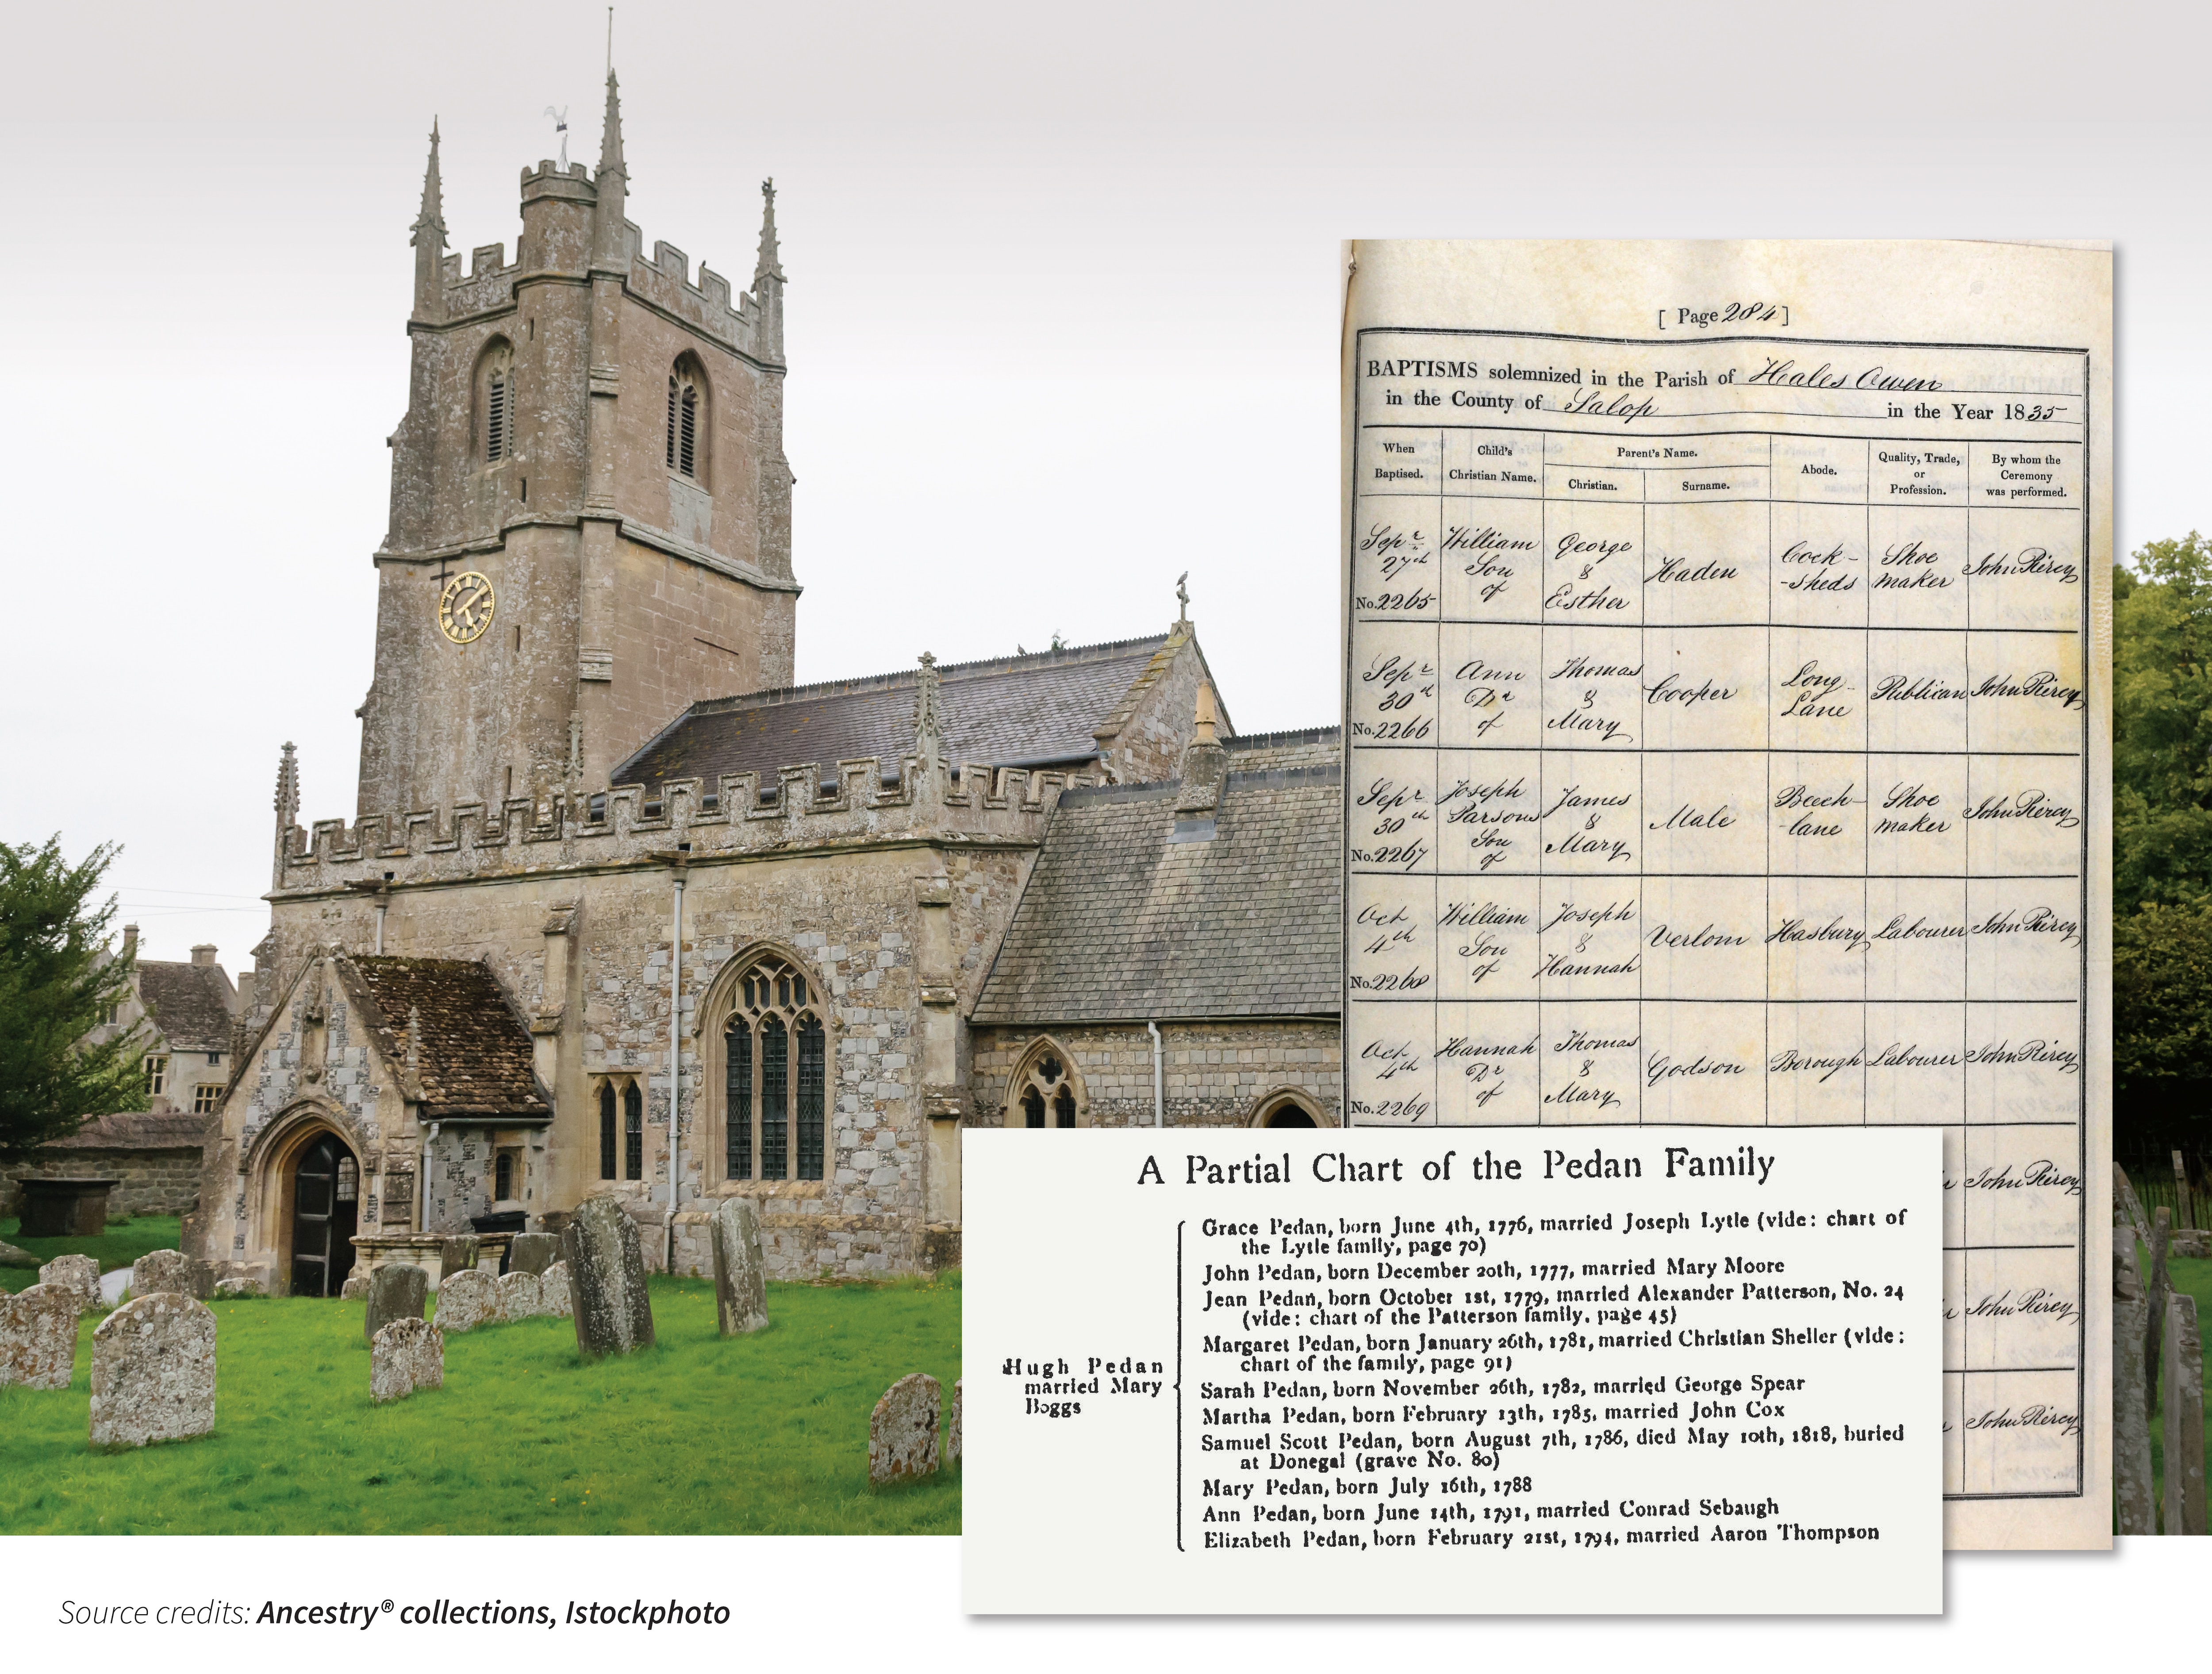 [ Page 284 ]
BAPTISMS solemnized in the Parish of Hales Owen
in the County of Salop in the Year 1835
When Baptised. Child's Christian Name. Parent's Name. Christian. Surname. Abode. Quality, Trade, or Profession. By whom the Ceremony was performed.
Sepr 27th No. 2265 William Son of George & Esther Haden Cock-sheds Shoe maker John Piercy
Sepr 30th No. 2266 Ann Dr of Thomas & Mary Cooper Long Lane Publican John Piercy
Sepr 30th No. 2267 Joseph Parsons Son of James & Mary Male Beech-lane Shoe maker John Piercy
Oct 4th No. 2268 William Son of Joseph & Hannah Hasbury Labourer John Piercy
Oct 4th No. 2269 Hannah Dr of Thomas & Mary Godson Borough Labourer John Piercy
John Piercy
John Piercy
John Piercy
A Partial Chart of the Pedan Family
Hugh Pedan
married Mary
Boggs
Grace Pedan, born June 4th, 1776, married Joseph Lytle (vide: chart of
the Lytle family, page 70)
John Pedan, born December 20th, 1777, married Mary Moore
Jean Pedan, born October 1st, 1779, married Alexander Patterson, No. 24
(vide: chart of the Patterson family, page 45)
Margaret Pedan, born January 26th, 1781, married Christian Sheller (vide:
chart of the family, page 91)
Sarah Pedan, born November 26th, 1782, married George Spear
Martha Pedan, born February 13th, 1785, married John Cox
Samuel Scott Pedan, born August 7th, 1786, died May 10th, 1818, buried
at Donegal (grave No. 80)
Mary Pedan, born July 16th, 1788
Ann Pedan, born June 14th, 1791, married Conrad Sebaugh
Elizabeth Pedan, born February 21st, 1794, married Aaron Thompson
Source credits: Ancestry® collections, Istockphoto